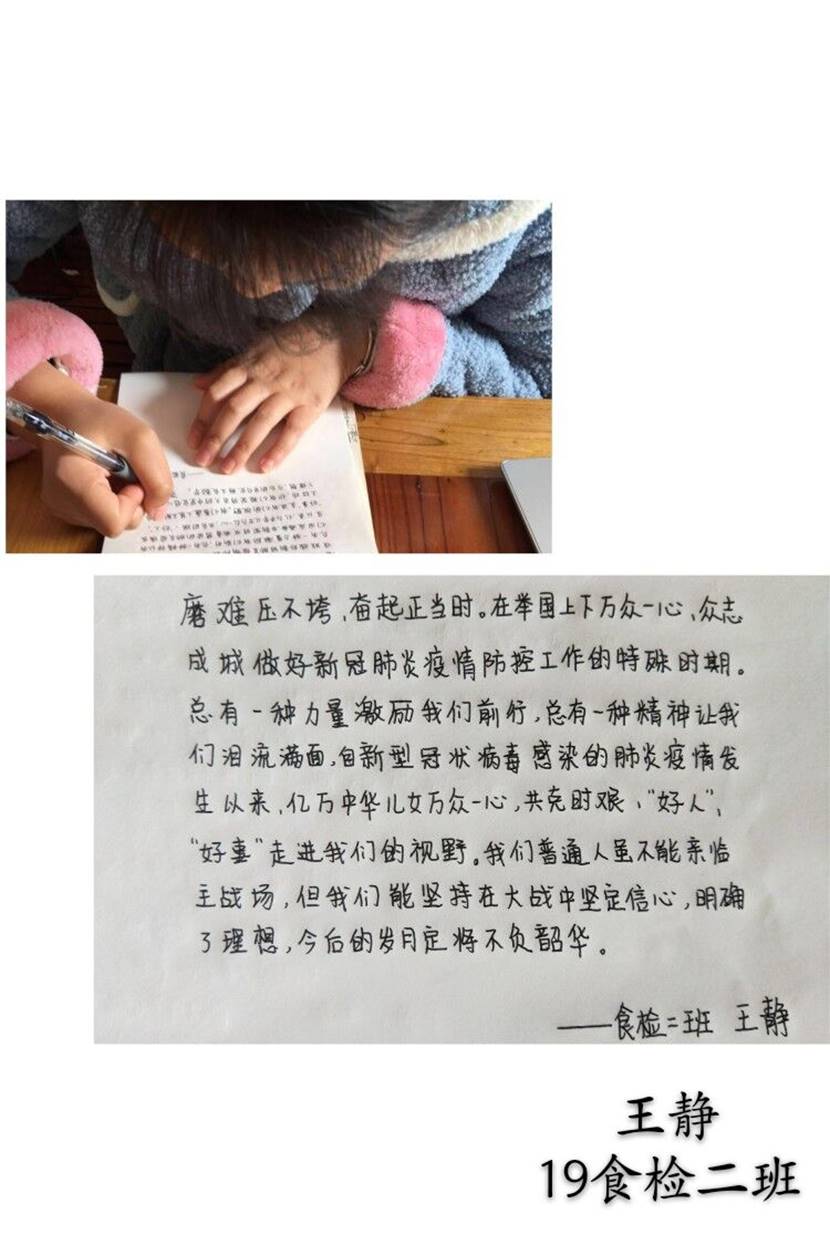 磨难压不垮、奋起正当时。在举国上下万众一心、众志
成城做好新冠肺炎疫情防控工作的特殊时期。
总有一种力量激励我们前行，总有一种精神让我
们泪流满面，自新型冠状病毒感染的肺炎疫情发
生以来、亿万中华儿女万众一心，共克时艰、“好人”、
“好事”走进我们的视野。我们普通人虽不能亲临
主战场，但我们能坚持在大战中坚定信心，明确
了理想，今后的岁月定将不负韶华。
——食检二班 王静
王静
19食检二班